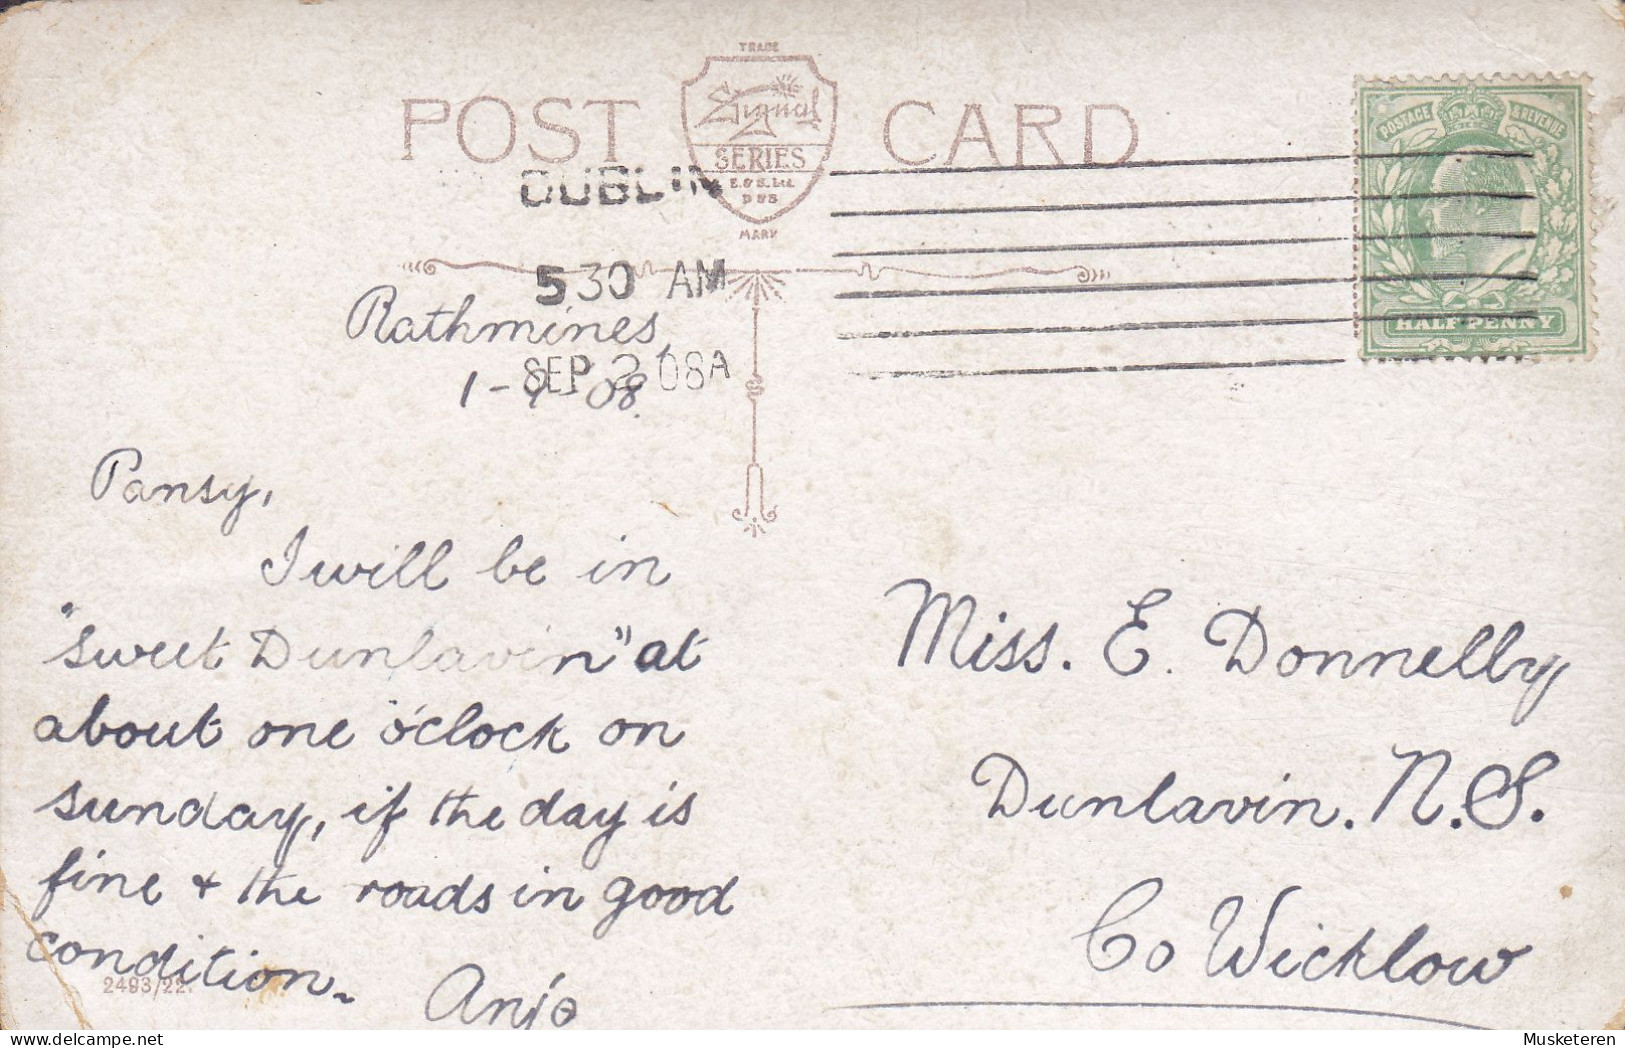 TRADE
POST CARD
Signal
SERIES
E. & S. Ltd.
MARK
DUBLIN
5 30 AM
SEP 2 08A
POSTAGE & REVENUE
HALF PENNY
Rathmines,
1-9-08.
Pansy,
I will be in
"sweet Dunlavin" at
about one o'clock on
sunday, if the day is
fine & the roads in good
condition.
Anjo
2493/22.
Miss. E. Donnelly
Dunlavin. N.S.
Co Wicklow
Musketeren
delcampe.net